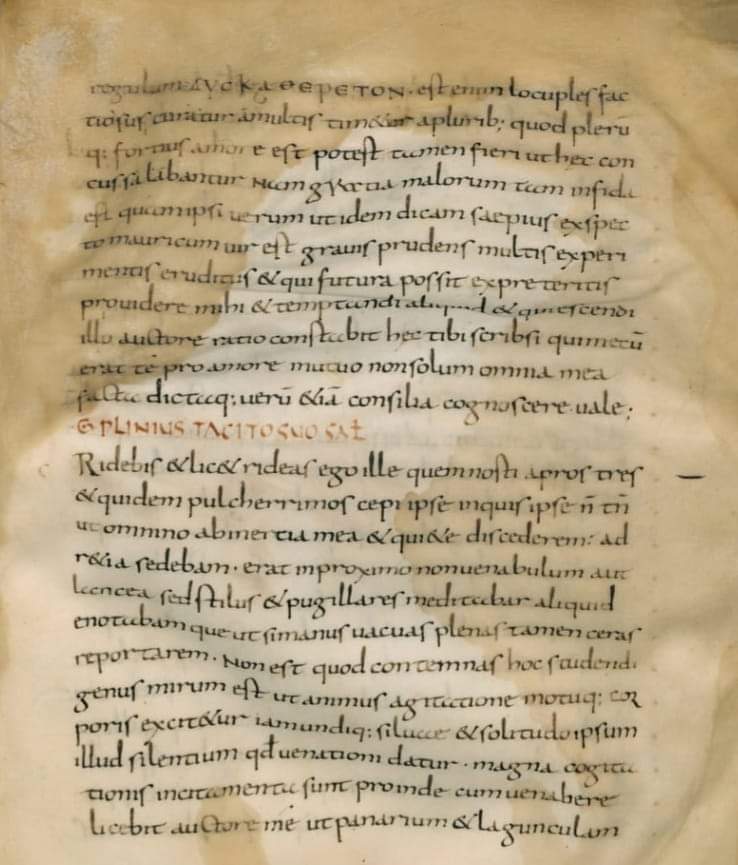 regulum ΔΥСΚΑΘΕΡΕΤΟΝ · est enim locuples fac
tiosus curatur a multis tim&ur a plurib; quod plerū
q; fortius amore est potest tamen fieri ut hec con
cussa labantur Nam gratia malorum tam infida
est quam ipsi uerum ut idem dicam saepius exspec
to mauricum uir est grauis prudens multis experi
mentis eruditus & qui futura possit expreteritis
prouidere mihi & temptandi aliquid & quiescendi
illo auctore ratio constabit hec tibi scribsi quim&ū
erat te pro amore mutuo non solum omnia mea
facta dictaq; uerū &iā consilia cognoscere uale ;
C PLINIUS TACITO SUO SAŁ
Ridebis & lic& rideas ego ille quem nosti apros tres
& quidem pulcherrimos cepi ipse inquis ipse n̄ tn̄
ut omnino ab inertia mea & qui&e discederem : ad
r&ia sedebam · erat in proximo non uenabulum aut
lancea sed stilus & pugillares meditabar aliquid
enotabam que ut si manus uacuas plenas tamen ceras
reportarem · Non est quod contemnas hoc studendi
genus mirum est ut animus agitatione motuq; cor
poris excit&ur iam undiq; siluae & solitudo ipsum
illud silentium qđ uenationi datur · magna cogita
tionis incitamenta sunt proinde cum uenabere
licebit auctore me ut panarium & lagunculam